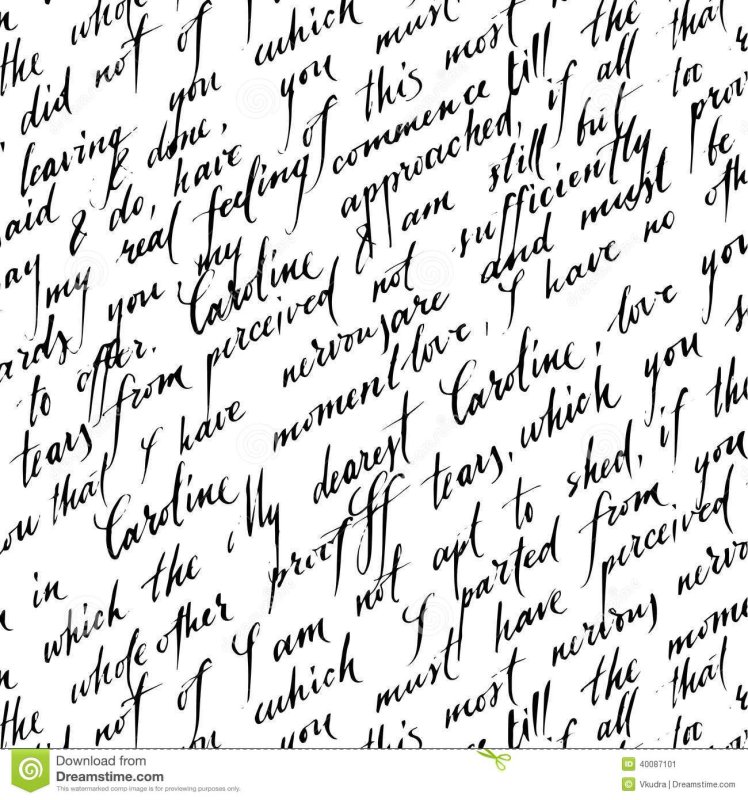 the whole
did not of
leaving you which
aid & done, you must
ay & do, have of this most the that
my real feeling commence till
ards you, my approached, if all too
to offer. Caroline & am still but prov
tears from perceived not sufficiently be
ou that I have nervous are and must
Caroline moment love, I have no oth
in My dearest Caroline, love you
which the proof tears, which you s
the whole other I am not apt to shed, if the
not of which I parted from you
you must have perceived
this most nervous nervo
till the mome
if all that
too
Download from
Dreamstime.com
This watermarked comp image is for previewing purposes only.
ID 40087101
© Vkudra | Dreamstime.com